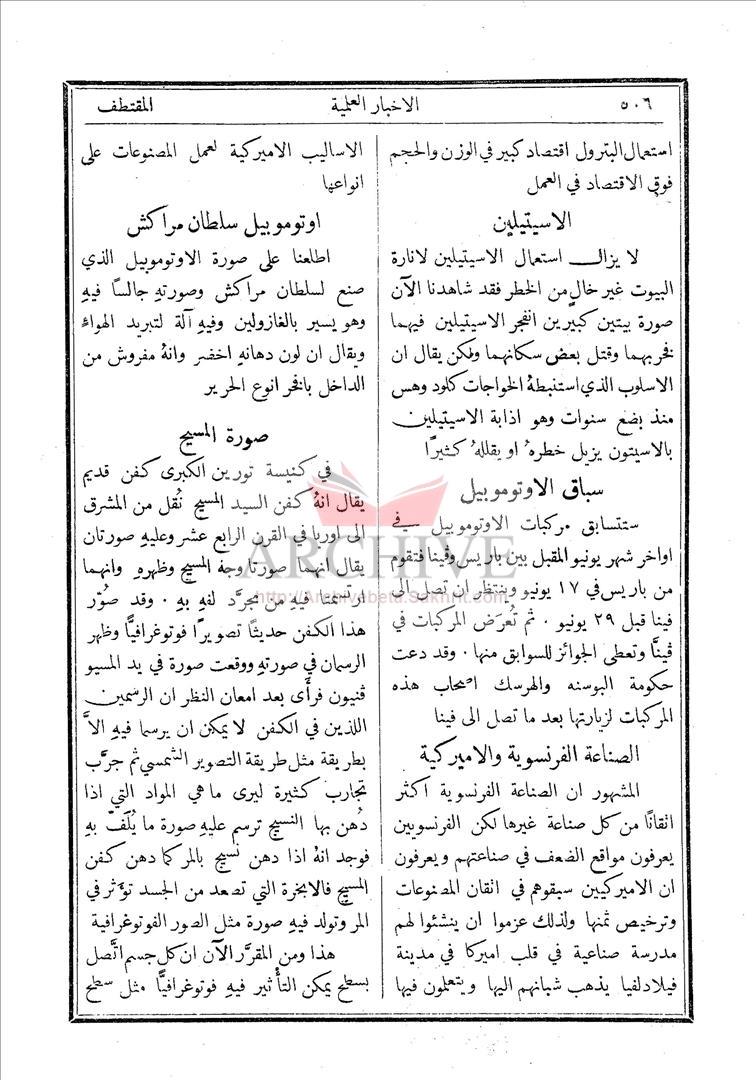 ٥٠٦ الاخبار العلمية المقتطف
استعمال البترول اقتصاد كبير في الوزن والحجم
فوق الاقتصاد في العمل
الاسيتيلين
لا يزال استعمال الاسيتيلين لانارة
البيوت غير خالٍ من الخطر فقد شاهدنا الآن
صورة بيتين كبيرين انفجر الاسيتيلين فيهما
فخربهما وقتل بعض سكانهما ولكن يقال ان
الاسلوب الذي استنبطهُ الخواجات كلود وهس
منذ بضع سنوات وهو اذابة الاسيتيلين
بالاسيتون يزيل خطرهُ او يقللهُ كثيرًا
سباق الاوتوموبيل
ستتسابق مركبات الاوتوموبيل في
اواخر شهر يونيو المقبل بين باريس وڤينا فتقوم
من باريس في ١٧ يونيو وينتظر ان تصل الى
فينا قبل ٢٩ يونيو . ثم تُعرَض المركبات في
ڤينَّا وتعطى الجوائز للسوابق منها . وقد دعت
حكومة البوسنه والهرسك اصحاب هذه
المركبات لزيارتها بعد ما تصل الى فينا
الصناعة الفرنسوية والاميركية
المشهور ان الصناعة الفرنسوية اكثر
اتقانًا من كل صناعة غيرها لكن الفرنسويين
يعرفون مواقع الضعف في صناعتهم ويعرفون
ان الاميركيين سبقوهم في اتقان المصنوعات
وترخيص ثمنها ولذلك عزموا ان ينشئوا لهم
مدرسة صناعية في قلب اميركا في مدينة
فيلادلفيا يذهب شبانهم اليها ويتعلمون فيها
الاساليب الاميركية لعمل المصنوعات على
انواعها
اوتوموبيل سلطان مراكش
اطلعنا على صورة الاوتوموبيل الذي
صنع لسلطان مراكش وصورتهِ جالسًا فيهِ
وهو يسير بالغازولين وفيهِ آلة لتبريد الهواء
ويقال ان لون دهانهِ اخضر وانهُ مفروش من
الداخل بافخر انوع الحرير
صورة المسيح
في كنيسة تورين الكبرى كفن قديم
يقال انهُ كفن السيد المسيح نُقل من المشرق
الى اوربا في القرن الرابع عشر وعليهِ صورتان
يقال انهما صورتا وجه المسيح وظهرهِ وانهما
ارتسمتا فيهِ من مجرَّد لفهِ بهِ . وقد صُوِّر
هذا الكفن حديثًا تصويرًا فوتوغرافيًّا وظهر
الرسمان في صورتهِ ووقعت صورة في يد المسيو
ڤنيون فرأى بعد امعان النظر ان الرسمين
اللذين في الكفن لا يمكن ان يرسما فيهِ الاَّ
بطريقة مثل طريقة التصوير الشمسي ثم جرَّب
تجارب كثيرة ليرى ما هي المواد التي اذا
دُهن بها النسيج ترسم عليهِ صورة ما يُلَفّ بهِ
فوجد انهُ اذا دهن نسيج بالمر كما دهن كفن
المسيح فالابخرة التي تصعد من الجسد تؤثر في
المر وتولد فيهِ صورة مثل الصور الفوتوغرافية
هذا ومن المقرَّر الآن ان كل جسم اتَّصل
بسطح يمكن التأثير فيهِ فوتوغرافيًّا مثل سطح
ARCHIVE
http://Archivebeta.Sakhrit.com